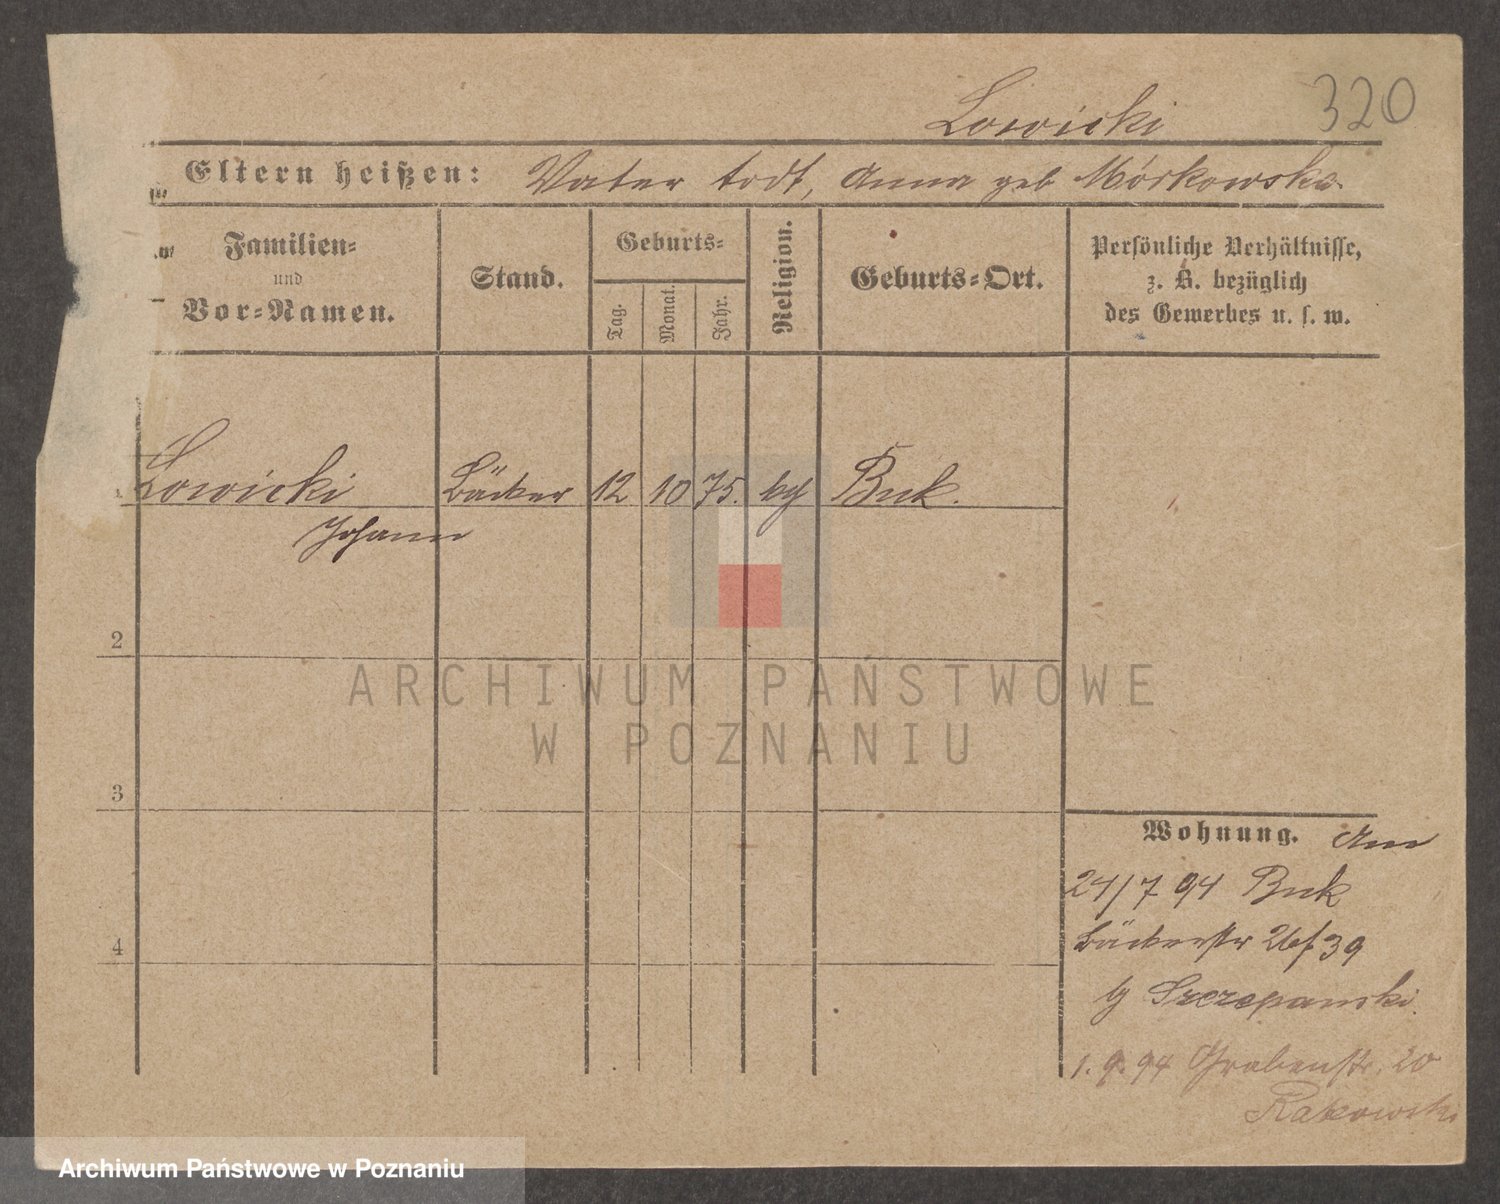 Lowicki 320
Eltern heißen: Vater todt, Anna geb Mórkowska
Familien=
und
Vor=Namen.
Stand.
Geburts=
Tag.
Monat.
Jahr.
Religion.
Geburts=Ort.
Persönliche Verhältnisse,
z. B. bezüglich
des Gewerbes u. s. w.
Lowicki Bäcker 12 10 75. kg Buk.
Johann
2
3
4
ARCHIWUM PAŃSTWOWE
W POZNANIU
Wohnung. Am
24/7 94 Buk
Bäckerstr 26/39
by Szczepanski
1. 9. 94 Grabenstr. 20
Rakowski
Archiwum Państwowe w Poznaniu